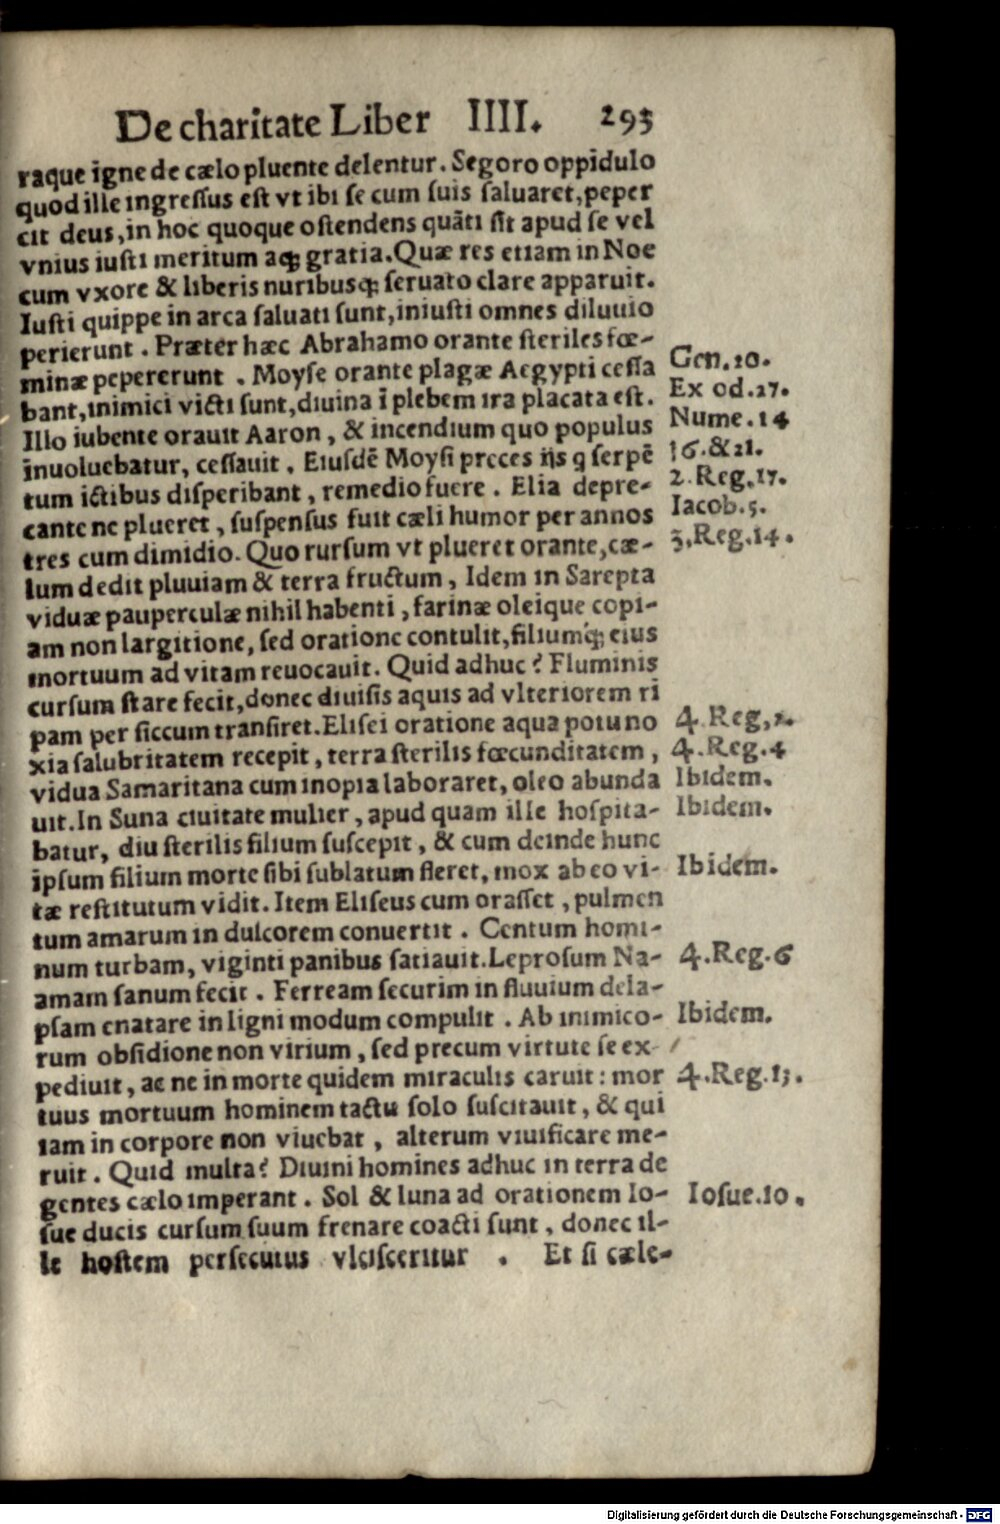 De charitate Liber IIII. 293
raque igne de cælo pluente delentur. Segoro oppidulo
quod ille ingreſſus eſt vt ibi ſe cum ſuis ſaluaret, peper
cit deus, in hoc quoque oſtendens quãti ſit apud ſe vel
vnius iuſti meritum atq; gratia. Quæ res etiam in Noe
cum vxore & liberis nuribusq; ſeruato clare apparuit.
Iuſti quippe in arca ſaluati ſunt, iniuſti omnes diluuio
perierunt. Præter hæc Abrahamo orante ſteriles fœ-
minæ pepererunt. Moyſe orante plagæ Aegypti ceſſa Gen. 20.
bant, inimici victi ſunt, diuina ĩ plebem ira placata eſt. Ex od. 17.
Illo iubente orauit Aaron, & incendium quo populus Nume. 14
inuoluebatur, ceſſauit. Eiuſdẽ Moyſi preces ijs q ſerpẽ 16. & 21.
tum ictibus diſperibant, remedio fuere. Elia depre- 2. Reg. 17.
cante ne plueret, ſuſpenſus fuit cæli humor per annos Iacob. 5.
tres cum dimidio. Quo rurſum vt plueret orante, cæ- 3. Reg. 14.
lum dedit pluuiam & terra fructum, Idem in Sarepta
viduæ pauperculæ nihil habenti, farinæ oleique copi-
am non largitione, ſed oratione contulit, filiumq́; eius
mortuum ad vitam reuocauit. Quid adhuc? Fluminis
curſum ſtare fecit, donec diuiſis aquis ad vlteriorem ri
pam per ſiccum tranſiret. Eliſei oratione aqua potu no 4. Reg. 2.
xia ſalubritatem recepit, terra ſterilis fœcunditatem, 4. Reg. 4
vidua Samaritana cum inopia laboraret, oleo abunda Ibidem.
uit. In Suna ciuitate mulier, apud quam ille hoſpita- Ibidem.
batur, diu ſterilis filium ſuſcepit, & cum deinde hunc
ipſum filium morte ſibi ſublatum fleret, mox ab eo vi- Ibidem.
tæ reſtitutum vidit. Item Eliſeus cum oraſſet, pulmen
tum amarum in dulcorem conuertit. Centum homi-
num turbam, viginti panibus ſatiauit. Leproſum Na- 4. Reg. 6
amam ſanum fecit. Ferream ſecurim in fluuium dela-
pſam enatare in ligni modum compulit. Ab inimico- Ibidem.
rum obſidione non virium, ſed precum virtute ſe ex-
pediuit, ac ne in morte quidem miraculis caruit: mor 4. Reg. 13.
tuus mortuum hominem tactu ſolo ſuſcitauit, & qui
iam in corpore non viuebat, alterum viuificare me-
ruit. Quid multa? Diuini homines adhuc in terra de
gentes cælo imperant. Sol & luna ad orationem Io- Ioſue. 10.
ſue ducis curſum ſuum frenare coacti ſunt, donec il-
le hoſtem perſecutus vlciſceritur. Et ſi cæle-
Digitalisierung gefördert durch die Deutsche Forschungsgemeinschaft - DFG